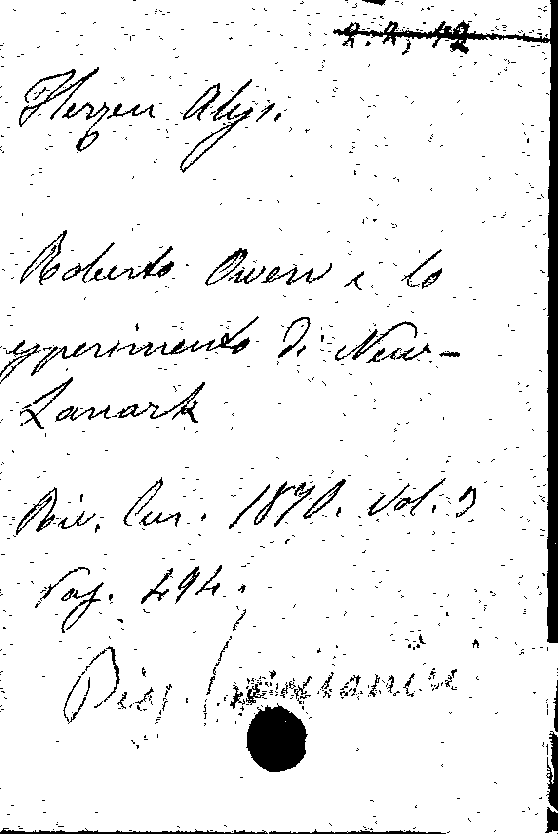 2.2.42
Herzen Aless.
Roberto Owen e lo
esperimento di New-
Lanark
Riv. Eur. 1870. Vol. 3
Pag. 494.
Biog.